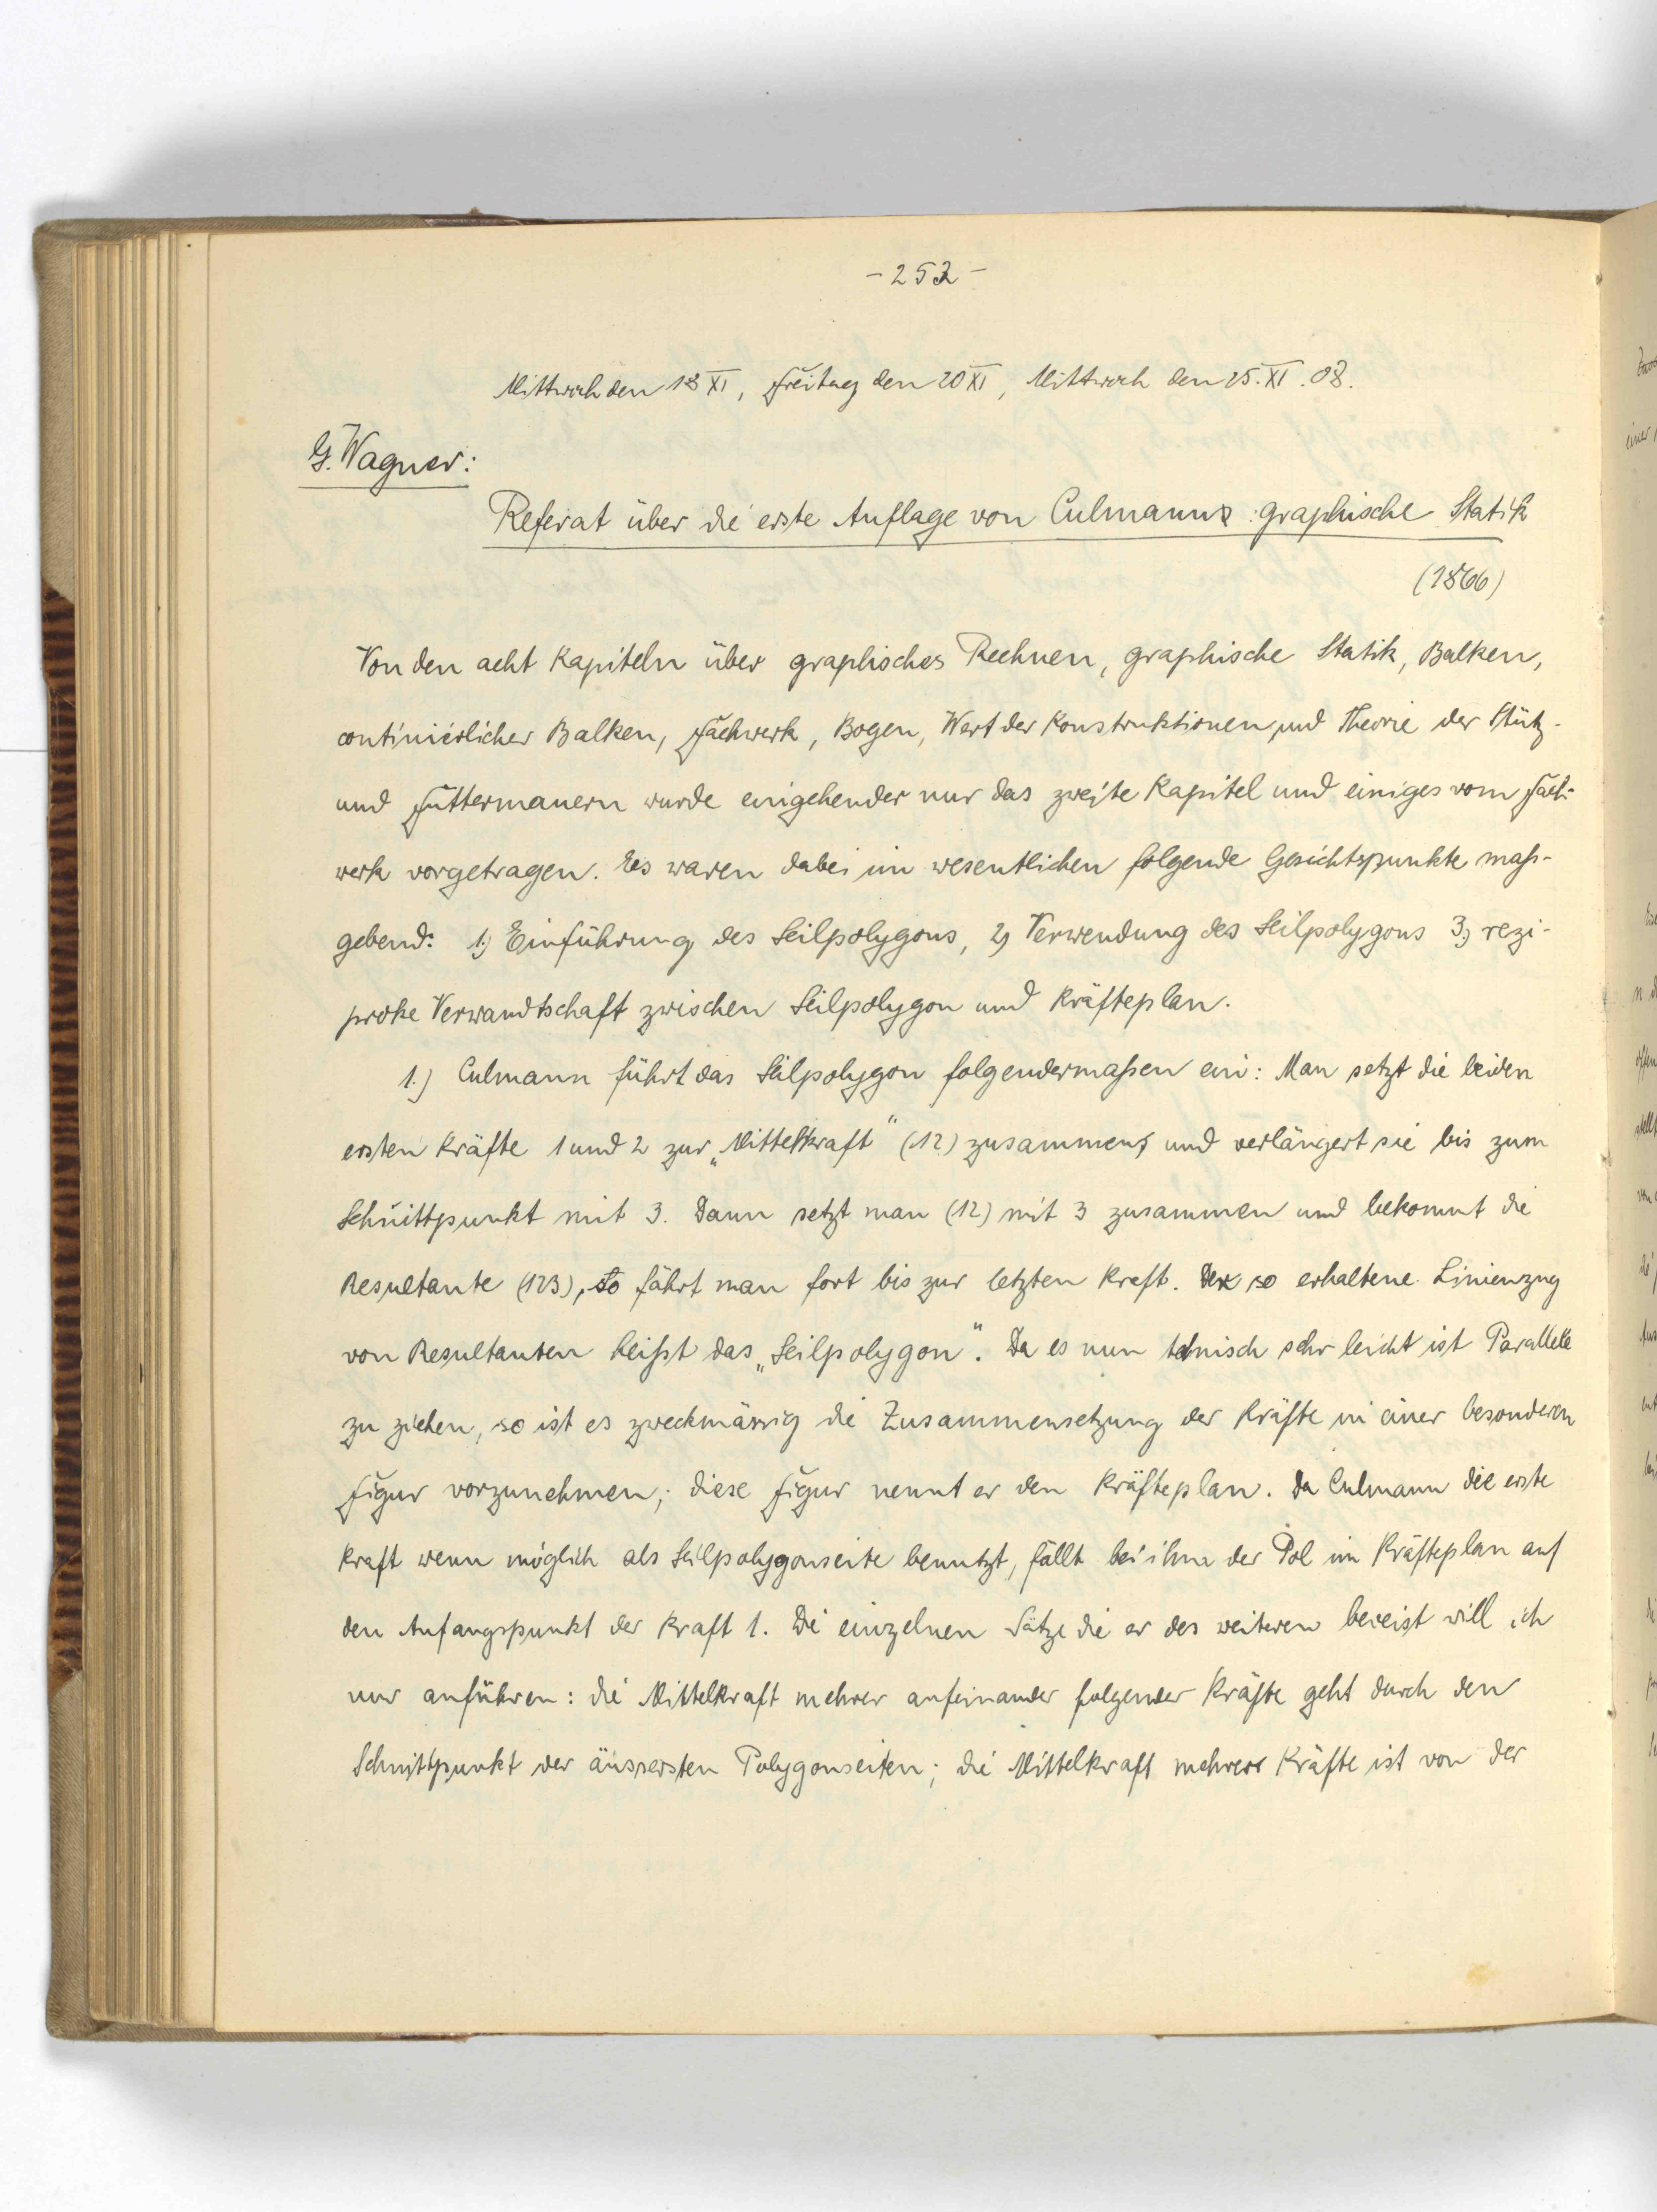 - 252 -
Mittwoch den 18 XI, Freitag den 20 XI, Mittwoch den 25. XI. 08.
G. Wagner:
Referat über die erste Auflage von Culmanns: graphische Statik
(1866)
Von den acht Kapiteln über graphisches Rechnen, graphische Statik, Balken,
continuierlicher Balken, Fachwerk, Bogen, Wert der Konstruktionen und Theorie der Stütz-
und Futtermauern wurde eingehender nur das zweite Kapitel und einiges vom Fach-
werk vorgetragen. Es waren dabei im wesentlichen folgende Gesichtspunkte maß-
gebend: 1.) Einführung des Seilpolygons, 2) Verwendung des Seilpolygons 3.) rezi-
proke Verwandtschaft zwischen Seilpolygon und Kräfteplan.
1.) Culmann führt das Seilpolygon folgendermaßen ein: Man setzt die beiden
ersten Kräfte 1 und 2 zur „Mittelkraft" (12) zusammen, und verlängert sie bis zum
Schnittpunkt mit 3. Dann setzt man (12) mit 3 zusammen und bekommt die
Resultante (123), so fährt man fort bis zur letzten Kraft. Der so erhaltene Linienzug
von Resultanten heißt das „Seilpolygon". Da es nun technisch sehr leicht ist Parallele
zu ziehen, so ist es zweckmässig die Zusammensetzung der Kräfte in einer besonderen
Figur vorzunehmen; diese Figur nennt er den Kräfteplan. Da Culmann die erste
Kraft wenn möglich als Seilpolygonseite benutzt, fällt bei ihm der Pol im Kräfteplan auf
den Anfangspunkt der Kraft 1. Die einzelnen Sätze die er des weiteren beweist will ich
nur anführen: die Mittelkraft mehrer aufeinander folgender Kräfte geht durch den
Schnittpunkt der äussersten Polygonseiten; die Mittelkraft mehrerer Kräfte ist von der